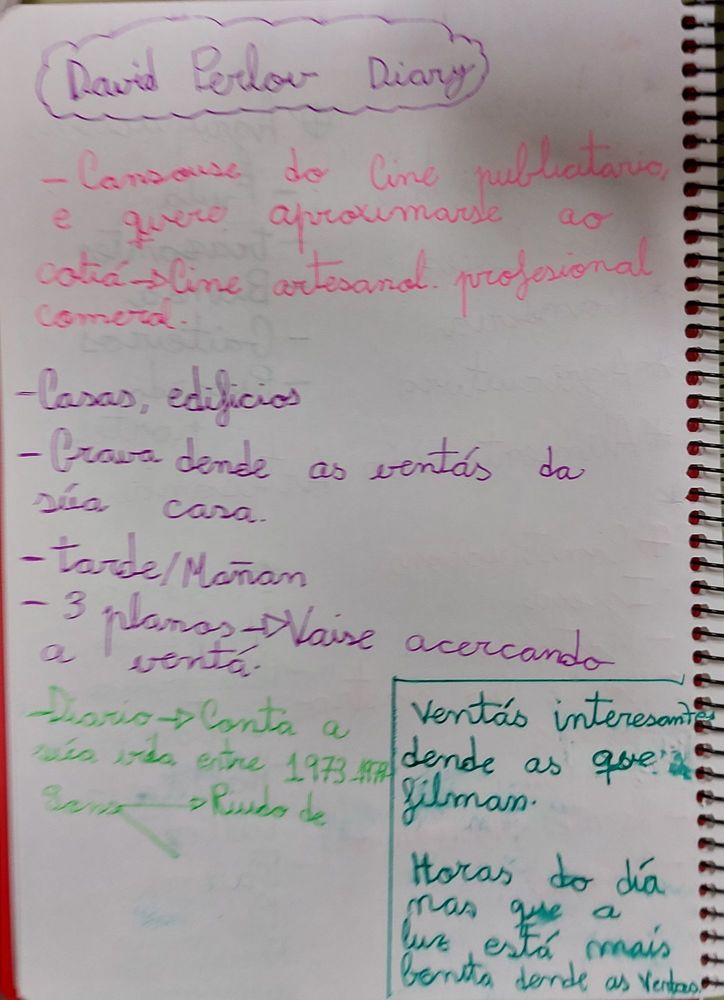 David Perlov Diary
- Cansouse do Cine publicitario,
e quero aproximarse ao
cotiá → Cine artesanal. profesional
comeral.
- Casas, edificios
- Grava dende as ventás da
súa casa.
- tarde/Mañan
- 3 planos → Vaise acercando
a ventá.
- Diario → Conta a
súa vida entre 1973-1977
→ Ruido de
Ventás interesantes
dende as que
filman.
Horas do día
nas que a
luz está mais
bonita dende as ventas.